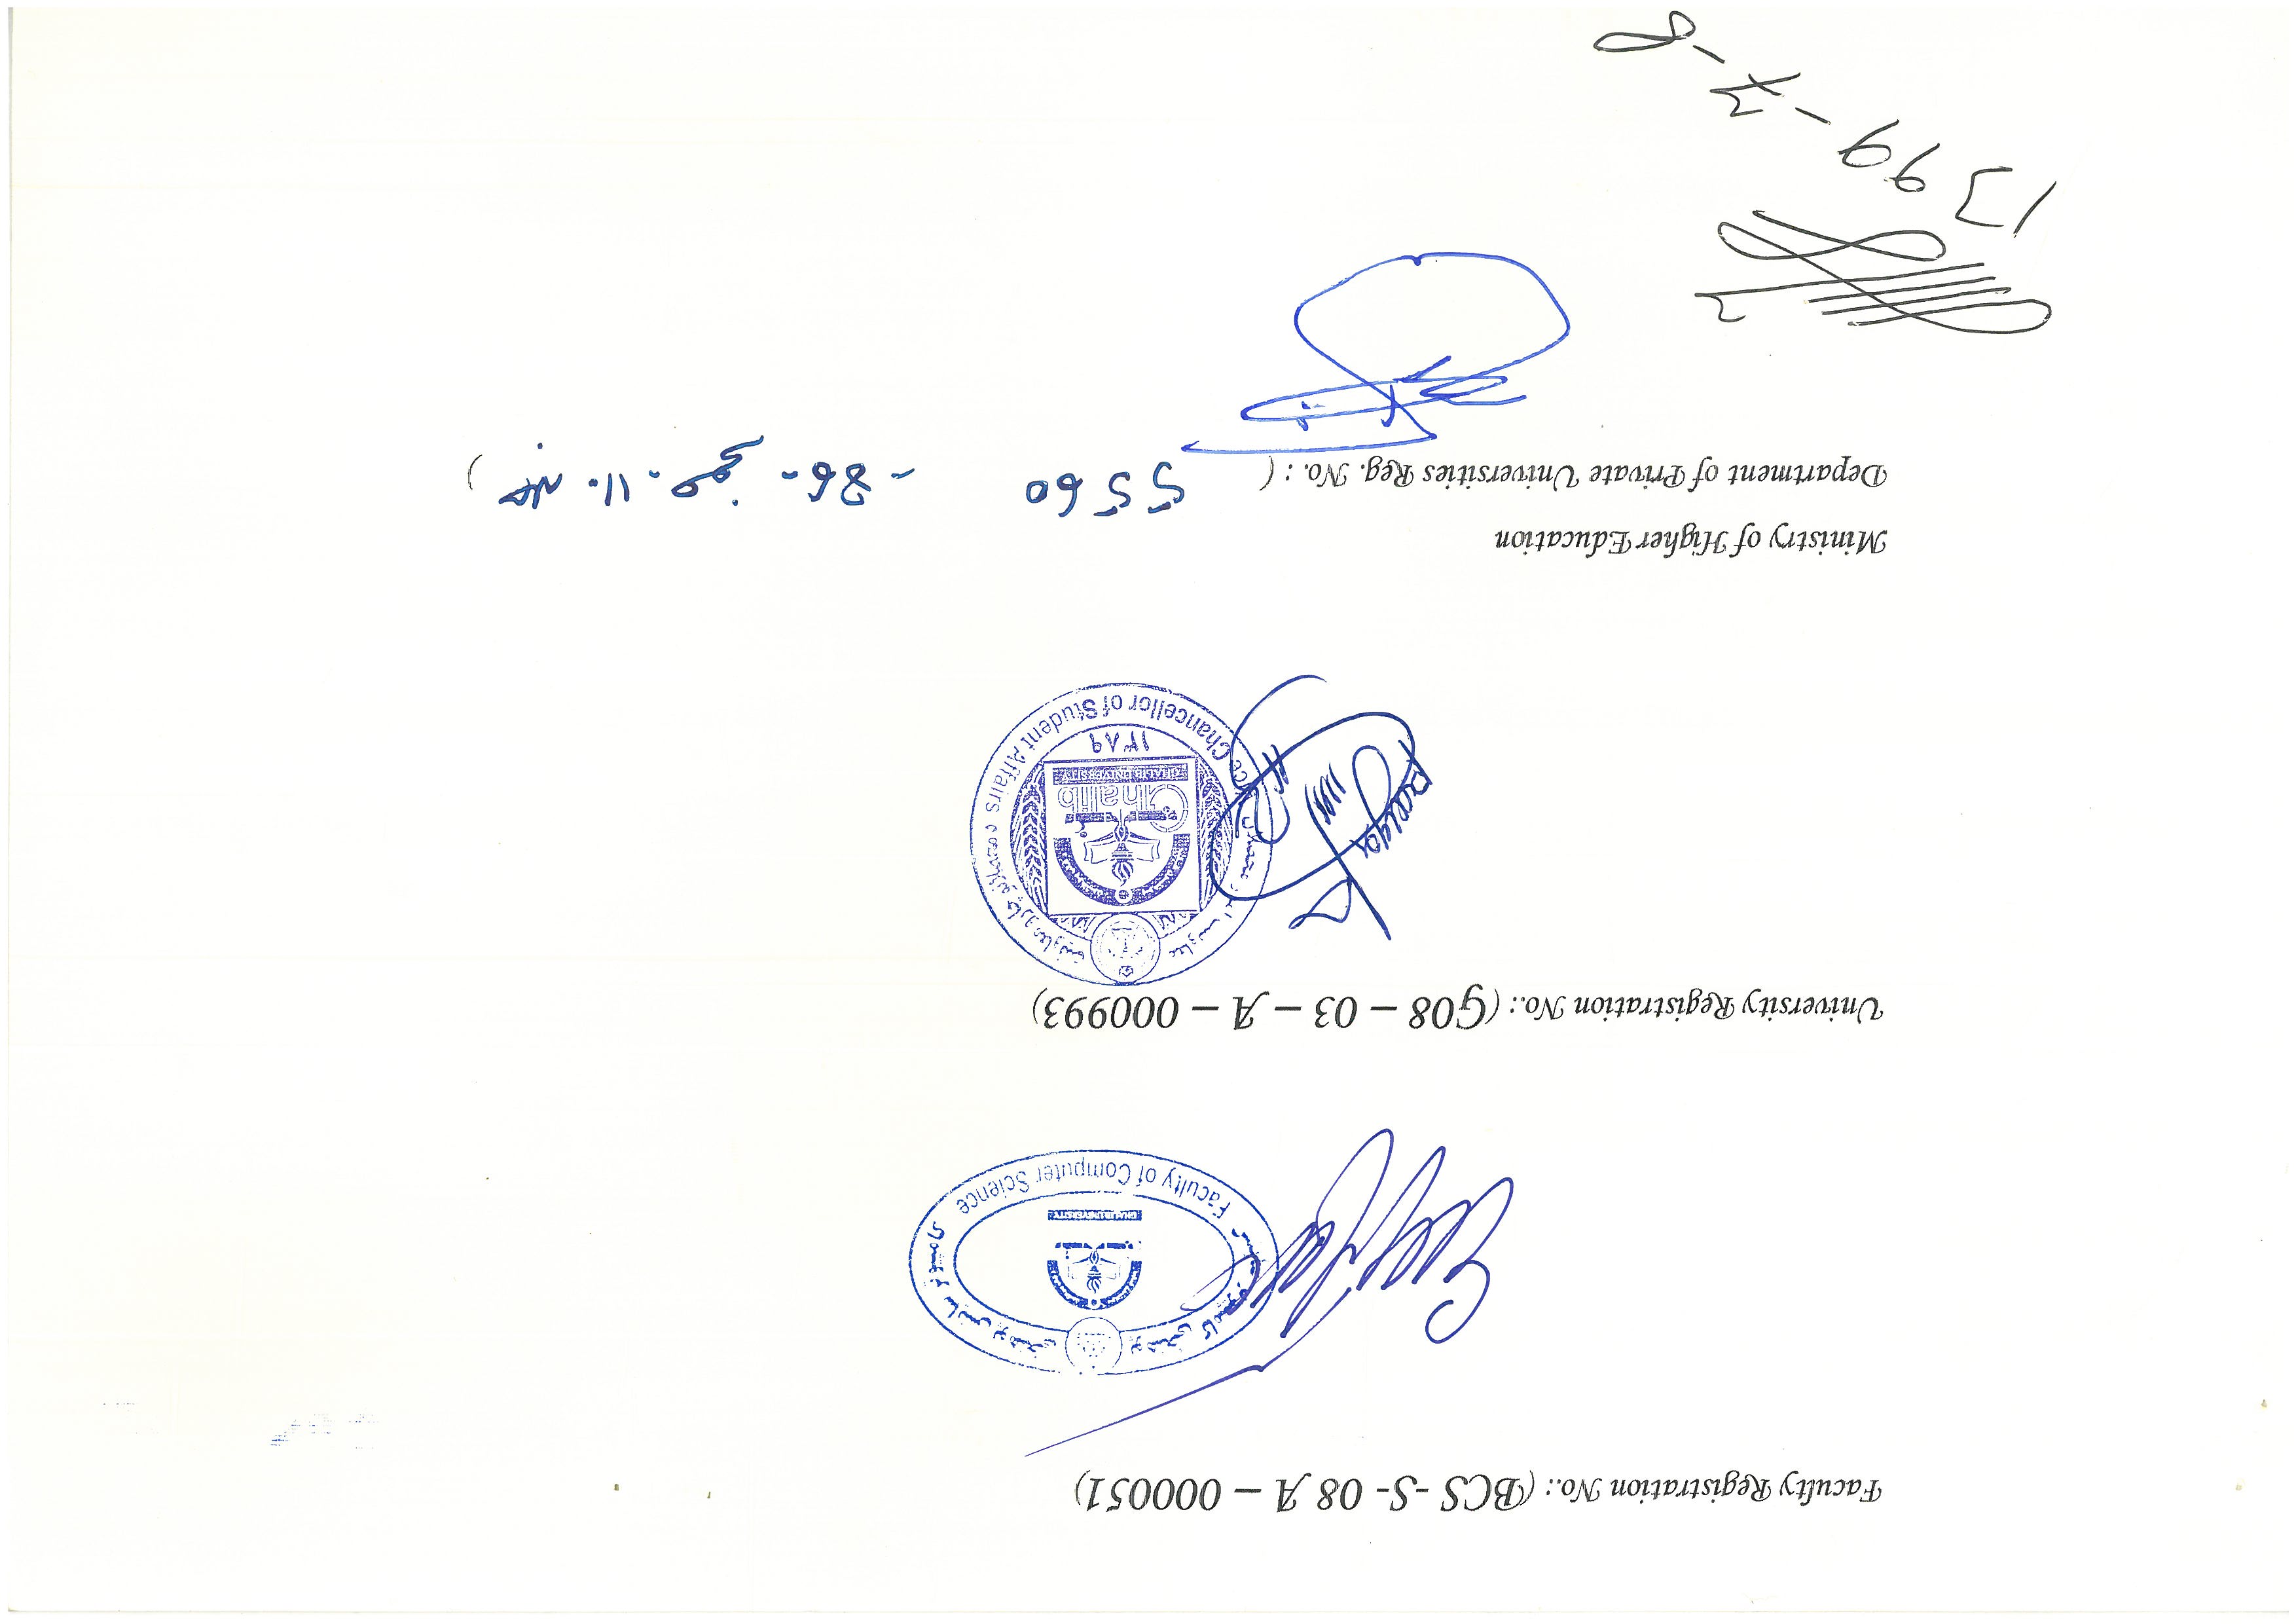 Faculty Registration No.: (BCS -S- 08 A – 000051)
پوهنځی کامپیوتر ساینس
کامپیوتر ساینس پوهنځی
GHALIB UNIVERSITY
Faculty of Computer Science
University Registration No.: (G08 – 03 – A – 000993)
معاونیت
Ghalib
GHALIB UNIVERSITY
۱۳۸۹
Chancellor of Student Affairs
Ministry of Higher Education
Department of Private Universities Reg. No. : ( 5560 - 86 - صفحه - 11 . جلد )
1399-7-8